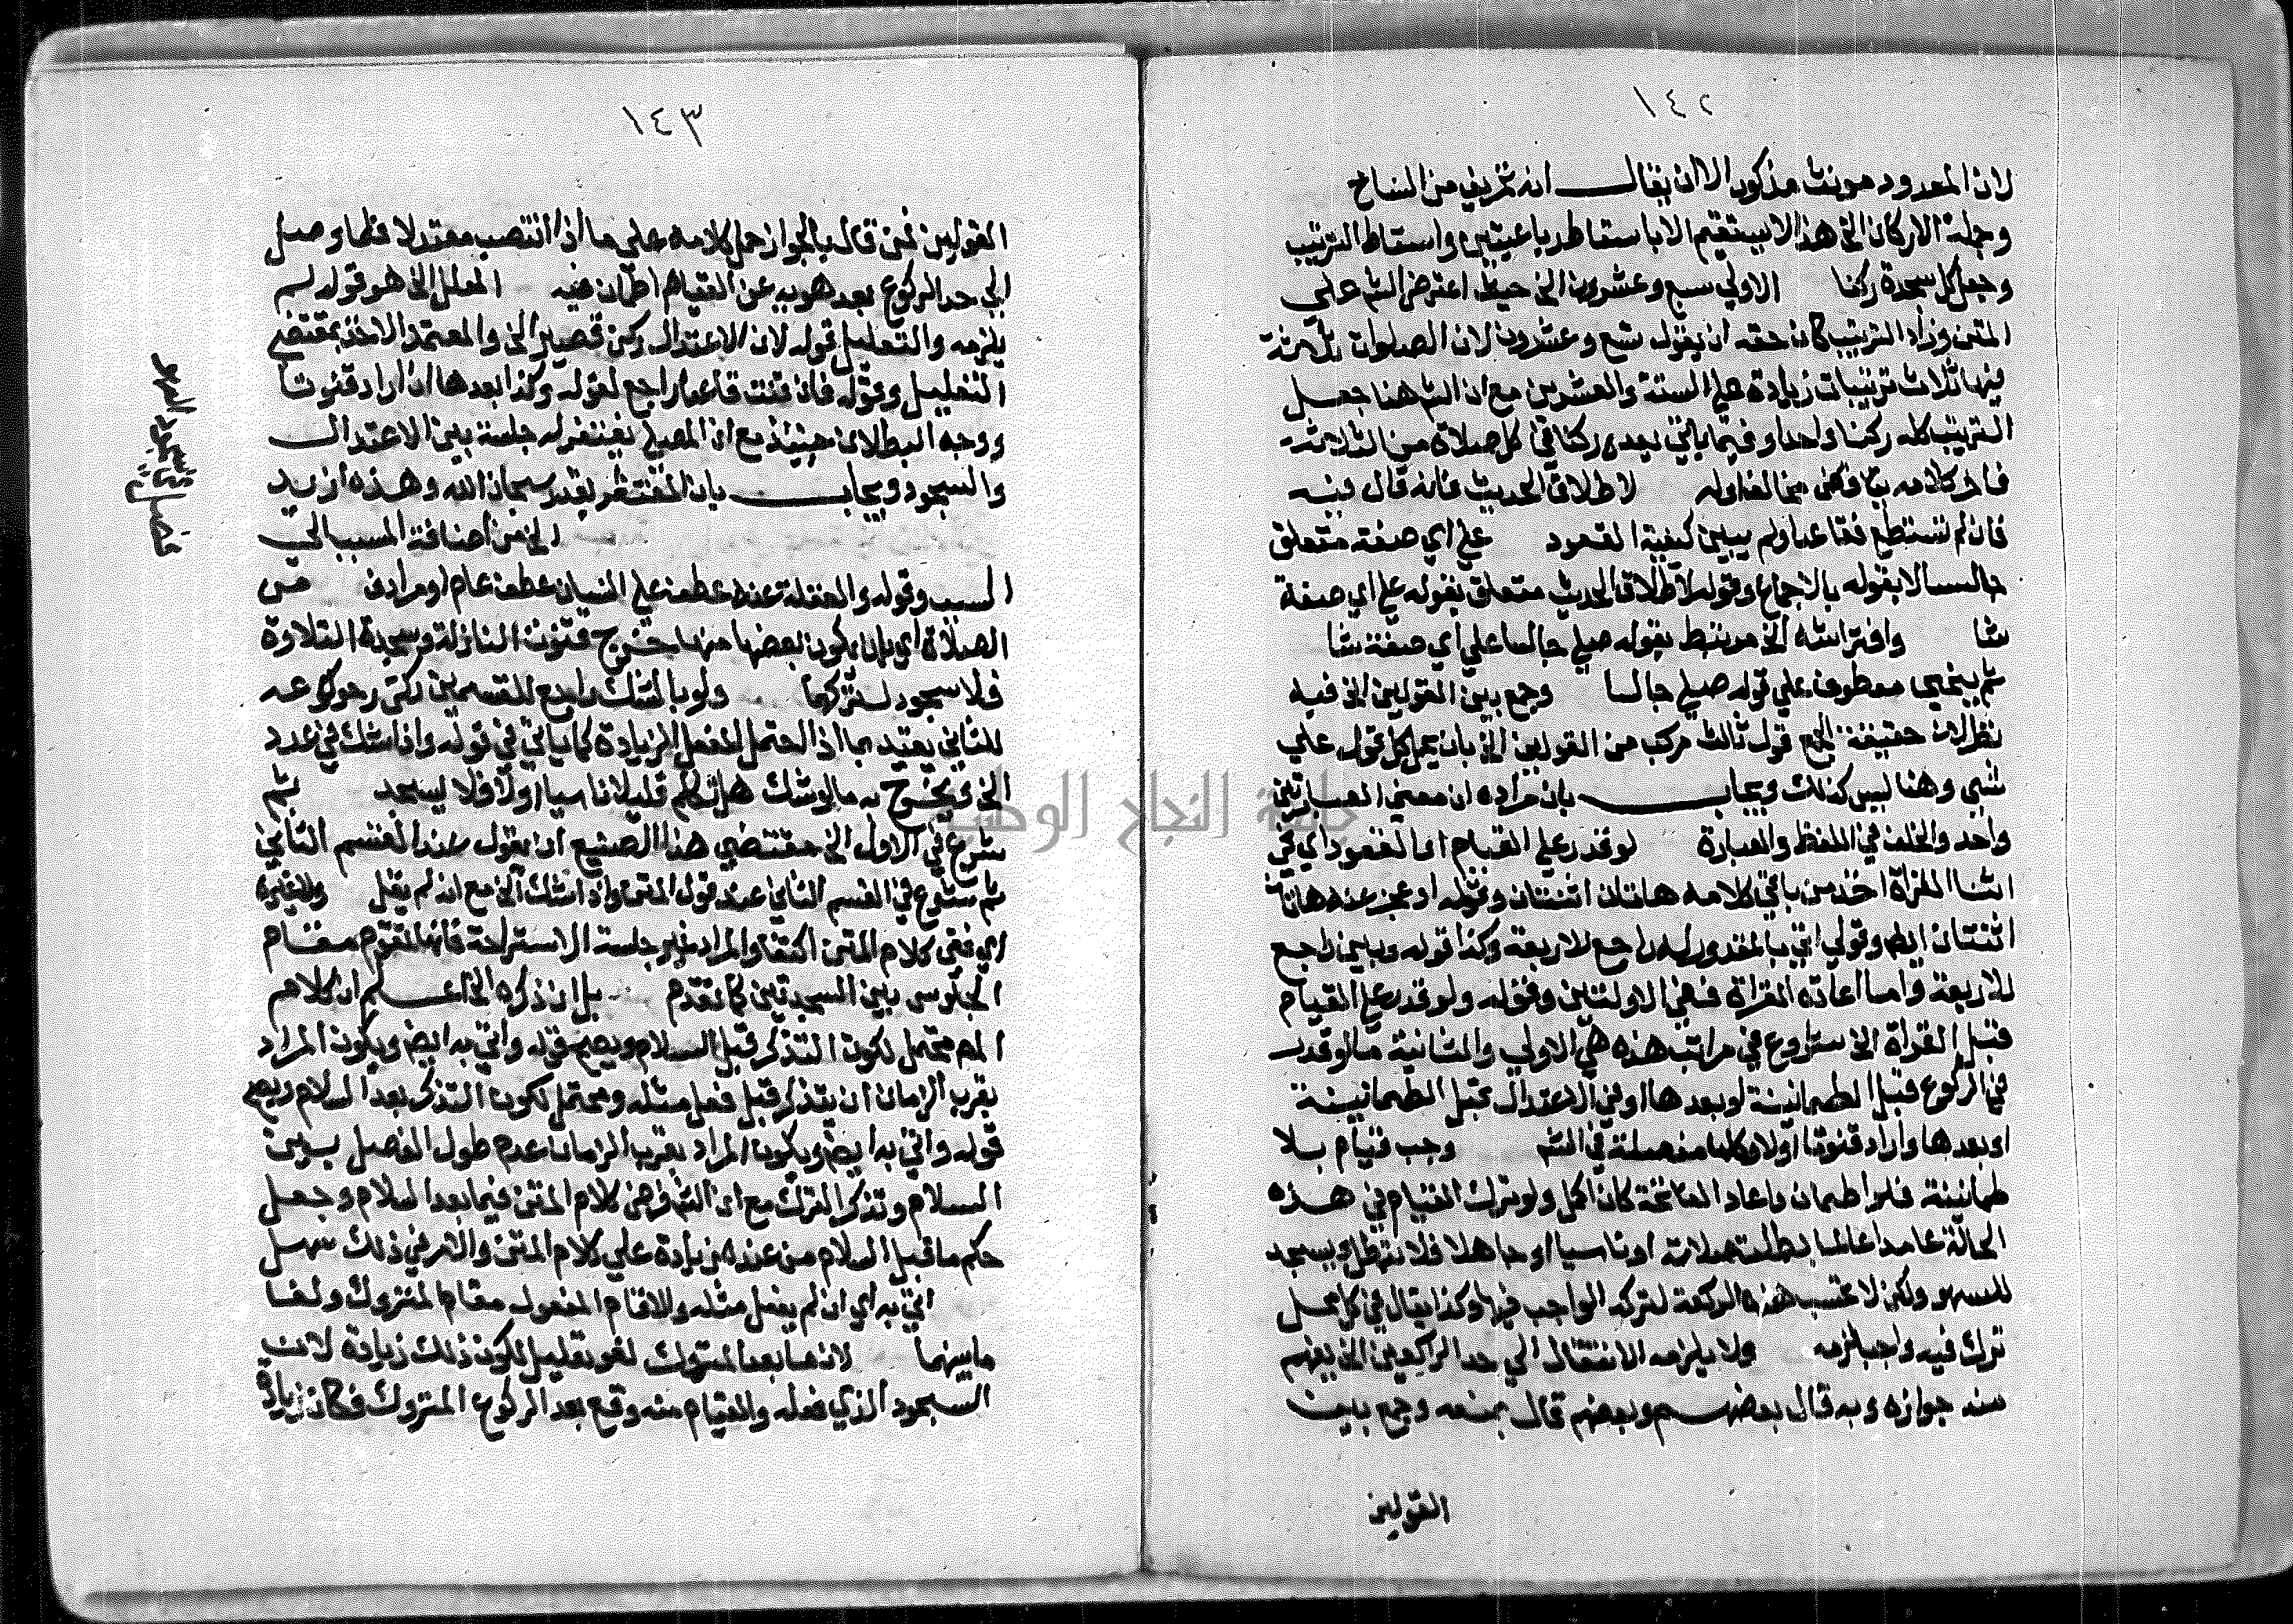 ١٤٢
لان المعدود مونث مذكور الا ان يقال انه تحريف من النساخ
وجملة الاركان الخ هذا لا يستقيم الا باسقاط رباعيتين واسقاط الترتيب
وجعل كل سجدة ركنا الاولي سبع وعشرون الخ حيث اعترض الش علي
المتن وزاد الترتيب كان حقه ان يقول تسع وعشرون لان الصلوات ثلاثة
فيها ثلاث ترتيبات زيادة علي الستة والعشرين مع ان الش هنا جعل
الترتيب كله ركنا واحدا وفيما ياتي يعده ركنا في كل صلاة من الثلاثة
فاخر كلامه مخالف اوله لاطلاق الحديث فانه قال فيه
فان لم تستطع فقاعدا ولم يبين كيفية القعود علي اي صفة متعلق
جالسا لا بقوله بالاجماع وقوله لاطلاق الحديث متعلق بقوله علي اي صفة
شا وافتراشه الخ مرتبط بقوله صلي جالسا علي اي صفة شا
ثم ينحني معطوف علي قوله صلي جالسا وجمع بين القولين الخ فيه
نظر لان حقيقة الجمع قول ثالث مركب من القولين الخ بان يحمل كل قول علي
شي وهنا ليس كذلك ويجاب بان مراده ان معني العبارتين
واحد والخلف في اللفظ والعبارة لو قدر علي القيام او القعود اي في
اثنا القراة اخذ من باقي كلامه هاتان اثنتان وقوله او عجز عنه هاتان
اثنتان ايضا وقوله اتي بالمقدور له راجع للاربعة وكذا قوله ويبني راجع
للاربعة واما اعادة القراة فهي الاولتين وقوله ولو قدر علي القيام
قبل القراة الخ شروع في مراتب هذه هي الاولي والثانية ما لو قدر
في الركوع قبل الطمانينة او بعدها او في الاعتدال قبل الطمانينة
او بعدها واراد قنوتا اولا وكلها مفصلة في الش وجب قيام بلا
طمانينة فلو اطمان واعاد الفاتحة كان اكمل ولو ترك القيام في هذه
الحالة عامدا عالما بطلت صلاته او ناسيا او جاهلا فلا تبطل ويسجد
للسهو ولكن لا تحسب هذه الركعة لتركه الواجب فيها وكذا يقال في كل محل
ترك فيه واجبا لزمه ولا يلزمه الانتقال الي حد الراكعين الخ يفهم
منه جوازه وبه قال بعضهم وبعضهم قال بمنعه وجمع بين
القولين
١٤٣
القولين فمن قال بالجواز حمل كلامه علي ما اذا انتصب معتدلا قطا وصل
الي حد الركوع بعد هويه عن القيام اطمان فيه المعلل الخ هو قوله لم
يلزمه والتعليل قوله لان الاعتدال ركن قصير الخ والمعتمد الاخذ بمقتضي
التعليل وقوله فان قنت قاعدا راجع لقوله وكذا بعدها ان اراد قنوتا
ووجه البطلان حينئذ مع ان المصلي يغتفر له جلسة بين الاعتدال
والسجود ويجاب بان المغتفر بقدر سبحان الله وهذه ازيد
فصل في سجود السهو
الخ من اضافة المسبب الي
السبب وقوله والغفلة عنه عطف علي النسيان عطف عام او مرادف من
الصلاة اي بان يكون بعضها منها يخرج قنوت النازلة وسجدة التلاوة
فلا سجود لتركهما ولو بالشك راجع للقسمين لكن رجوعه
للثاني يقيد بما اذا احتمل الفعل الزيادة كما ياتي في قوله واذا شك في عدد
الخ ويخرج به ما لو شك هل تكلم قليلا ناسيا اولا فلا يسجد ثم
شرع في الاول الخ مقتضي هذا الصنيع ان يقول عند القسم الثاني
ثم شرع في القسم الثاني عند قول المتن واذا شك الخ مع انه لم يقل ولا غيره
اي ففي كلام المتن اكتفا والمراد بغير جلسة الاستراحة فانها تقوم مقام
الجلوس بين السجدتين كما تقدم بل ان ذكره الخ اعلم ان كلام
المص محتمل لكون التذكر قبل السلام ويصح قوله واتي به ايضا ويكون المراد
بقرب الزمان ان يتذكر قبل فعل مثله ومحتمل لكون التذكر بعد السلام ويصح
قوله واتي به ايضا ويكون المراد بقرب الزمان عدم طول الفصل بين
السلام وتذكر الترك مع ان الش فرض كلام المتن فيما بعد السلام وجعل
حكم ما قبل السلام من عنده زيادة علي كلام المتن والامر في ذلك سهل
اتي به اي ان لم يفعل مثله والا قام المفعول مقام المتروك ولغا
ما بينهما لان ما بعد المتروك لغو تعليل لكون ذلك زيادة لان
السجود الذي فعله والقيام منه وقع بعد الركوع المتروك فكان زيادة
جامعة النجاح الوطنية